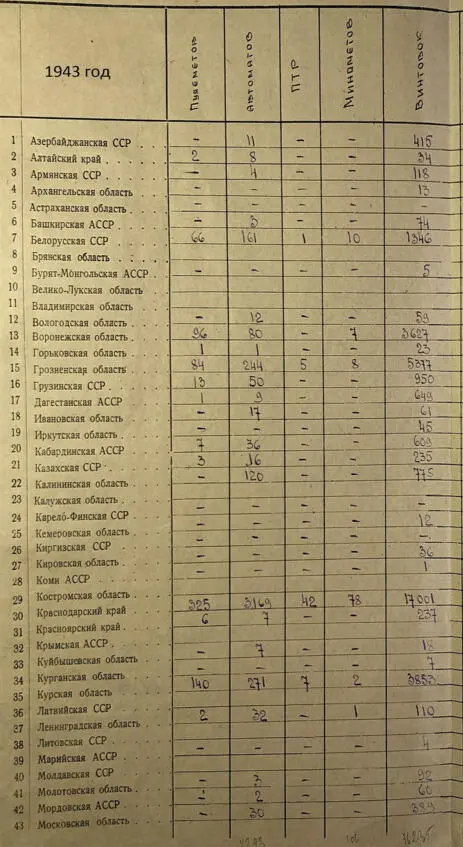 1943 год
Пулеметов
Автоматов
ПТР
Минометов
Винтовок
1 Азербайджанская ССР – 11 – – 415
2 Алтайский край 2 8 – – 34
3 Армянская ССР – 4 – – 118
4 Архангельская область – – – – 13
5 Астраханская область – – – – –
6 Башкирская АССР – 3 – – 74
7 Белорусская ССР 66 161 1 10 1346
8 Брянская область
9 Бурят-Монгольская АССР – – – – 5
10 Велико-Лукская область
11 Владимирская область
12 Вологодская область – 12 – – 59
13 Воронежская область 96 80 – 7 3627
14 Горьковская область 1 1 – – 23
15 Грозненская область 84 244 5 8 5377
16 Грузинская ССР 13 50 – – 950
17 Дагестанская АССР 1 9 – – 649
18 Ивановская область – 17 – – 61
19 Иркутская область – – – – 45
20 Кабардинская АССР 7 36 – – 609
21 Казахская ССР 3 16 – – 235
22 Калининская область – 120 – – 775
23 Калужская область – – – – –
24 Карело-Финская ССР – – – – 12
25 Кемеровская область – – – – –
26 Киргизская ССР – – – – 36
27 Кировская область – – – – 1
28 Коми АССР
29 Костромская область 325 3.169 42 78 17001
30 Краснодарский край 6 7 – – 237
31 Красноярский край
32 Крымская АССР – 7 – – 18
33 Куйбышевская область – – – – 7
34 Курганская область 140 271 7 2 3853
35 Курская область
36 Латвийская ССР 2 32 – 1 110
27 Ленинградская область
38 Литовская ССР – – – – 4
39 Марийская АССР
40 Молдавская ССР – 3 – – 92
41 Молотовская область – 2 – – 60
42 Мордовская АССР – 30 – – 389
43 Московская область